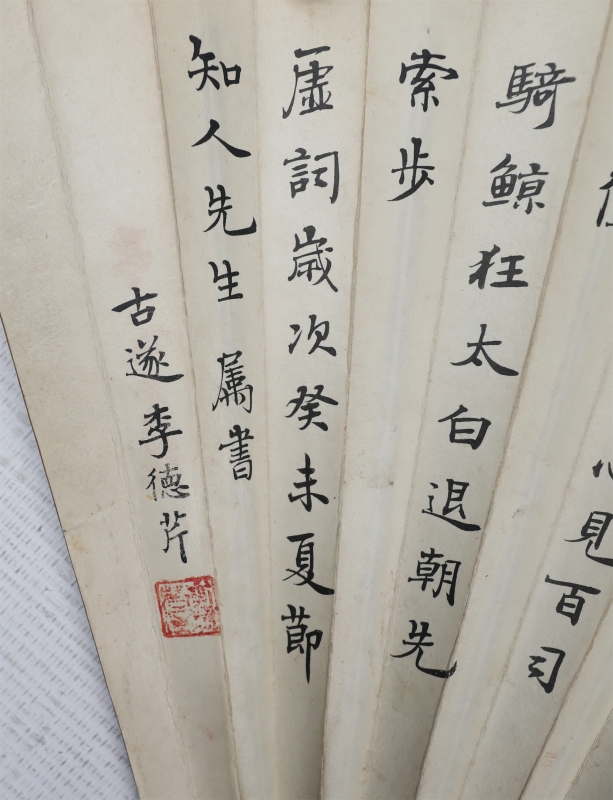 見百司
騎鯨狂太白退朝先
索步
虛詞歲次癸未夏節
知人先生 屬書
古遂李德芹